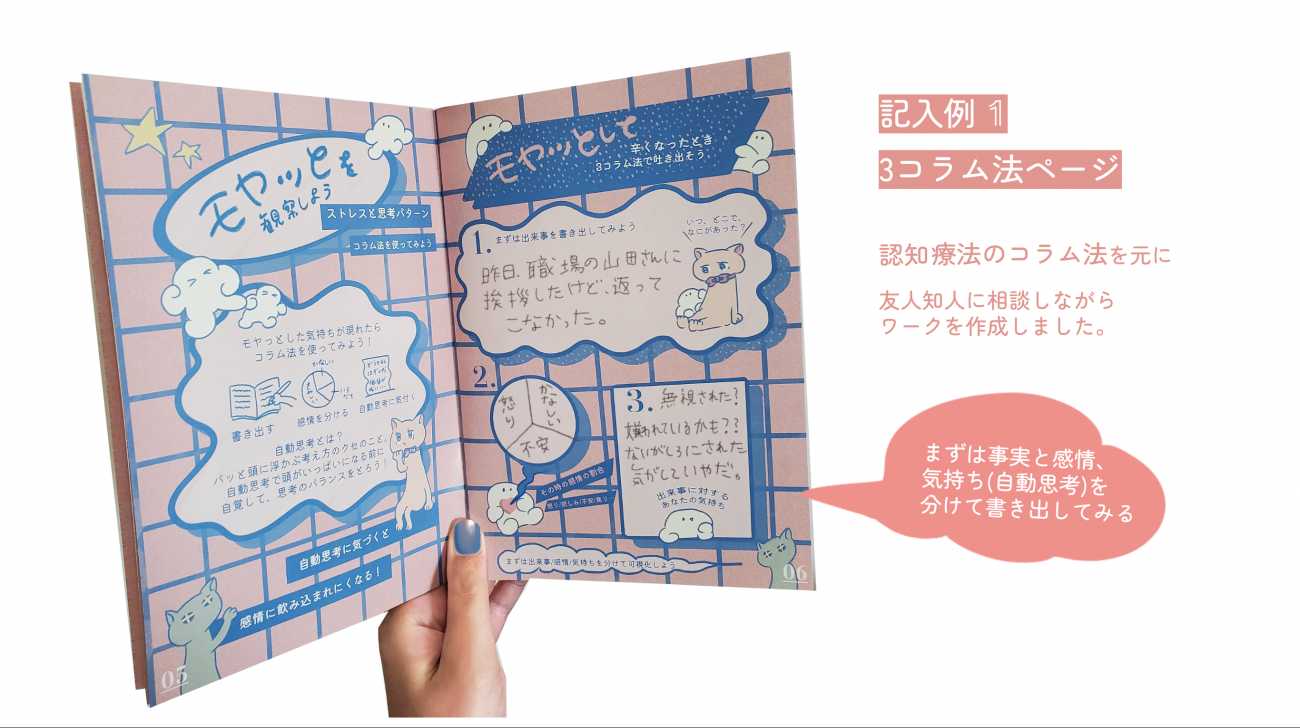 モヤッとを
観察しよう
ストレスと思考パターン
コラム法を使ってみよう
モヤっとした気持ちが現れたら
コラム法を使ってみよう！
書き出す
かなしい
感情を分ける
自動思考に気付く
自動思考とは？
パッと頭に浮かぶ考え方のクセのこと。
自動思考で頭がいっぱいになる前に
自覚して、思考のバランスをとろう！
自動思考に気づくと
感情に飲み込まれにくくなる！
05
モヤッとして
辛くなったとき
3コラム法で吐き出そう
1. まずは出来事を書き出してみよう
いつ、どこで、
なにがあった？
昨日、職場の山田さんに
挨拶したけど、返って
こなかった。
2.
怒り
かなしい
不安
その時の感情の割合
怒り/悲しみ/不安/焦り
3. 無視された？
嫌われているかも？？
ないがしろにされた
気がしていやだ。
出来事に対する
あなたの気持ち
まずは出来事/感情/気持ちを分けて可視化しよう
06
記入例 1
3コラム法ページ
認知療法のコラム法を元に
友人知人に相談しながら
ワークを作成しました。
まずは事実と感情、
気持ち(自動思考)を
分けて書き出してみる